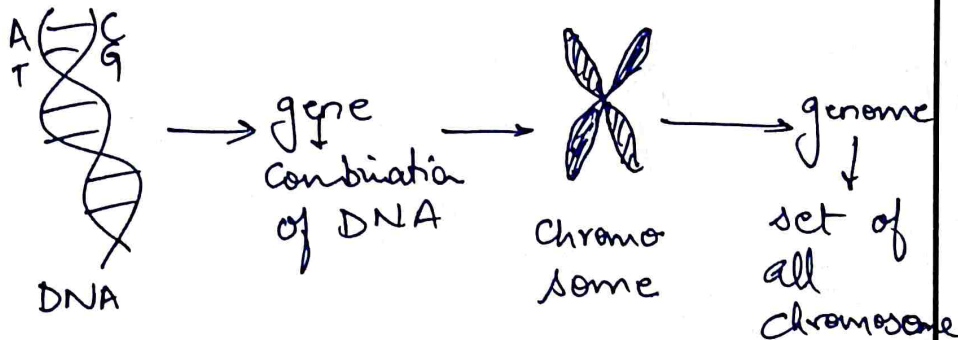 A C
T G
DNA
gene
combination
of DNA
chromo
some
genome
set of
all
chromosome